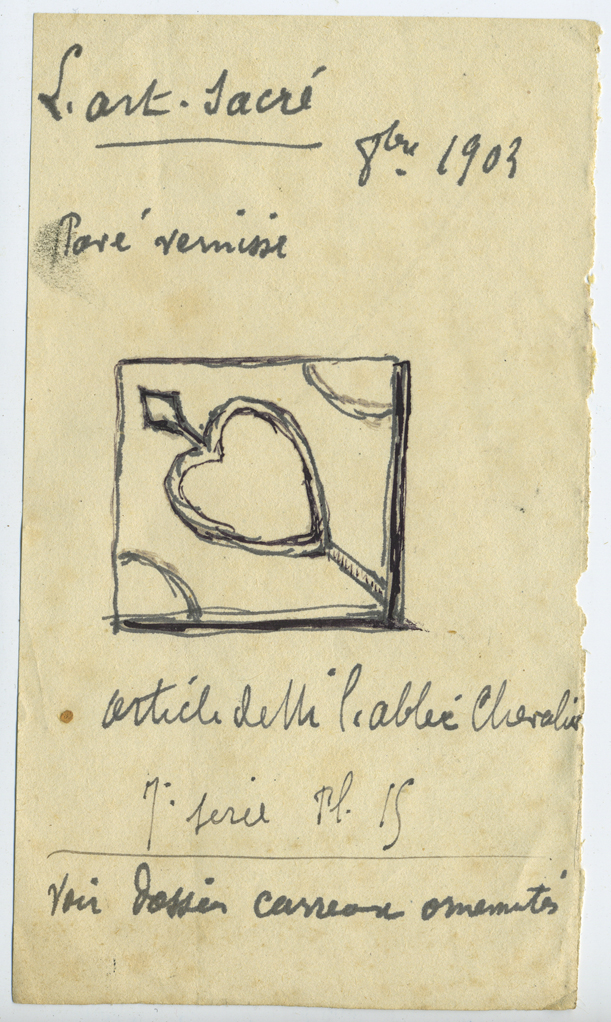 L'art. sacré
8bre 1903
Pavé vernissé
article de Mr l'abbé Chevalier
7e serie Pl. 15
Voir dossier carreaux ornementés